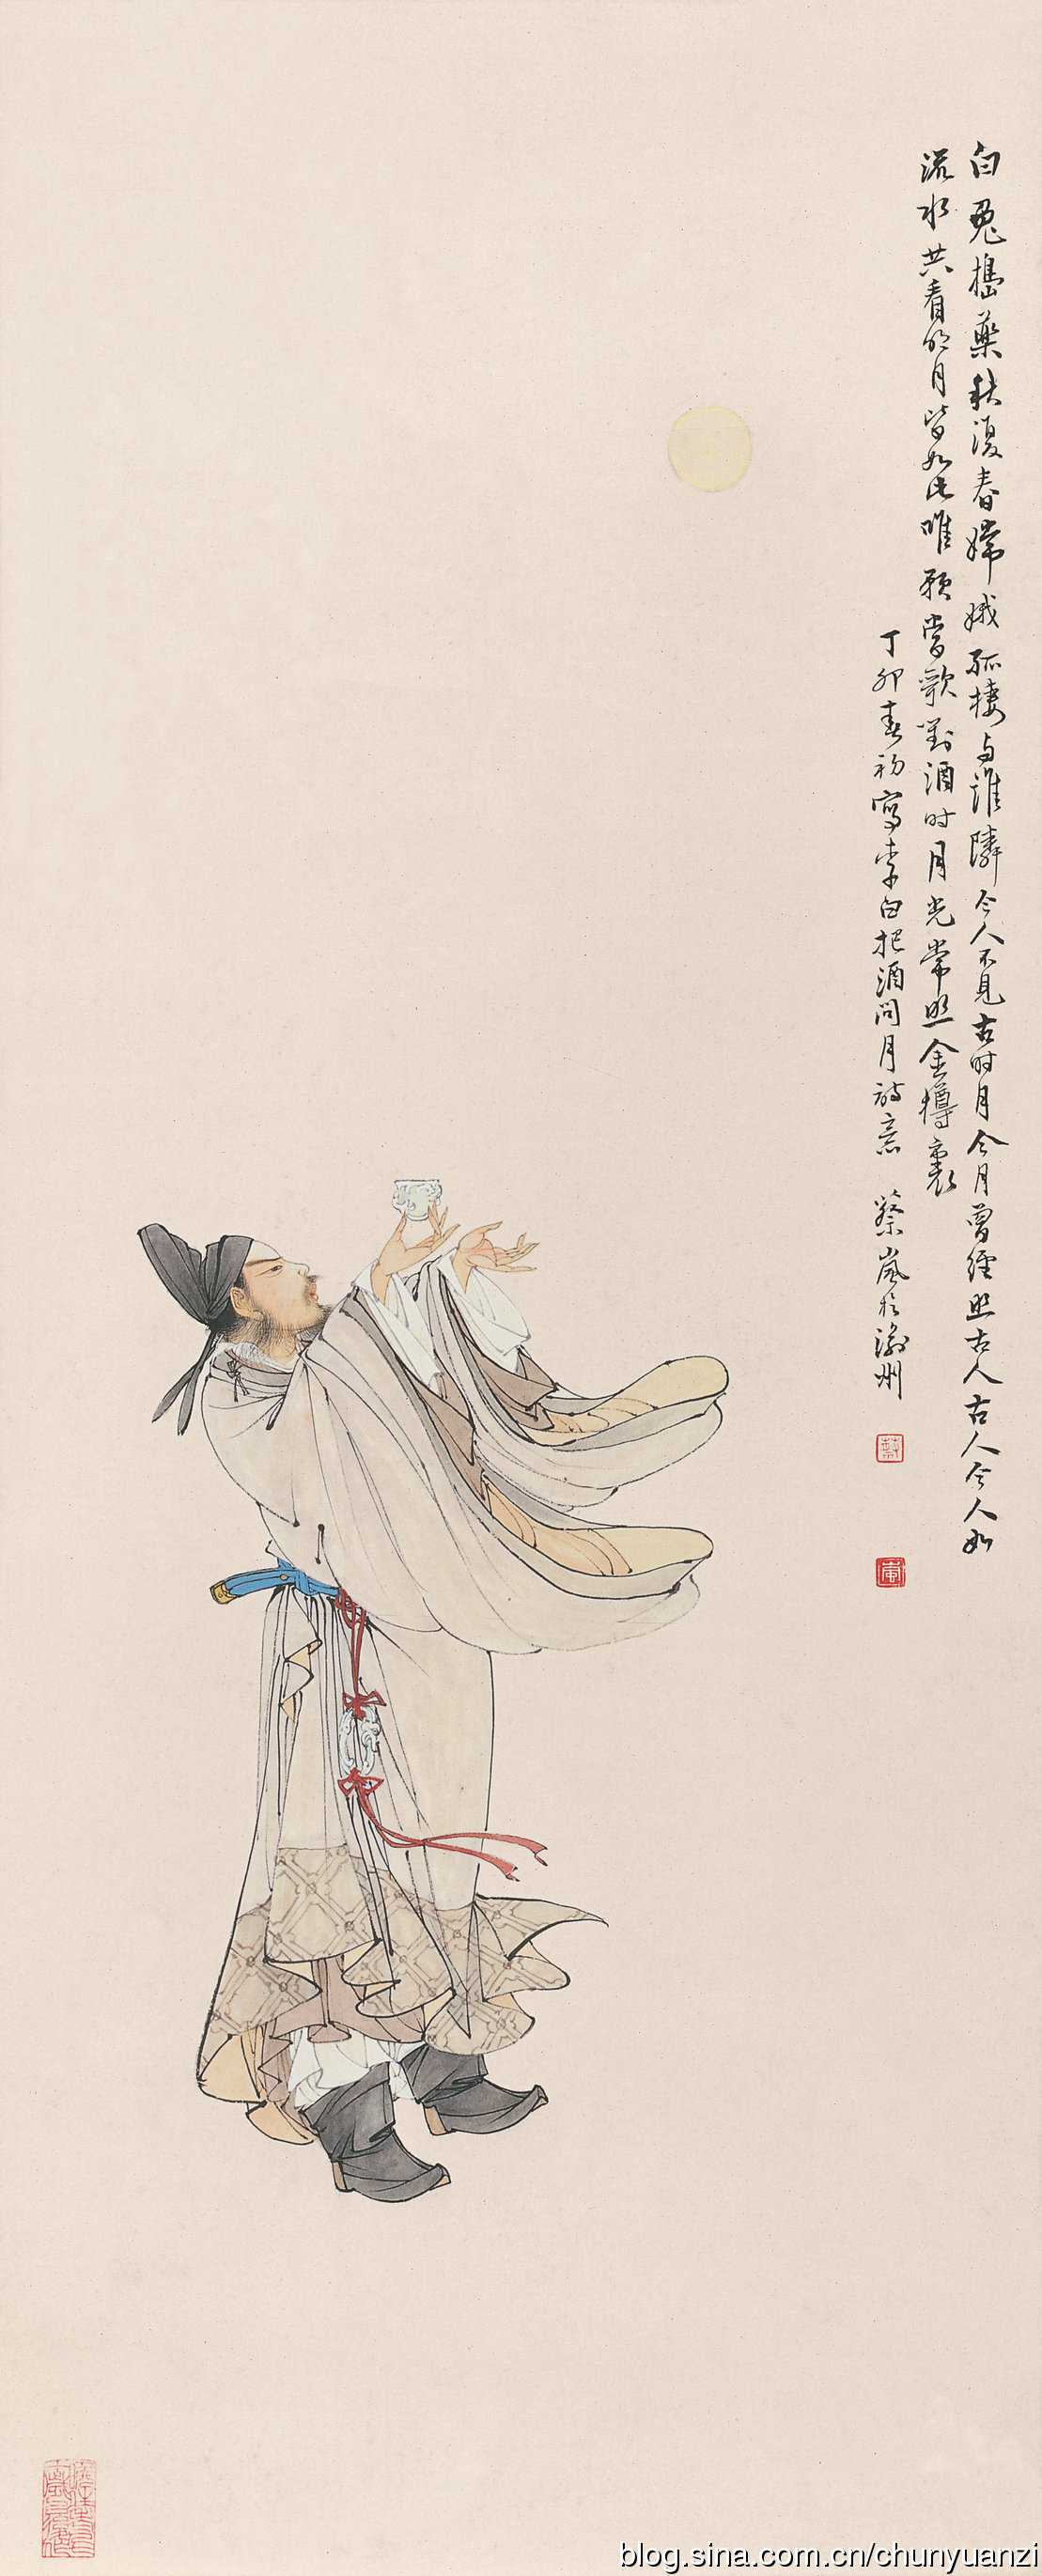 白兔搗藥秋復春嫦娥孤棲与誰隣今人不見古时月今月曾經照古人古人今人如
流水共看明月皆如此唯願當歌對酒时月光常照金樽裏
丁卯春初寫李白把酒問月詩意 蔡嵐於渝州
蔡
嵐
blog.sina.com.cn/chunyuanzi